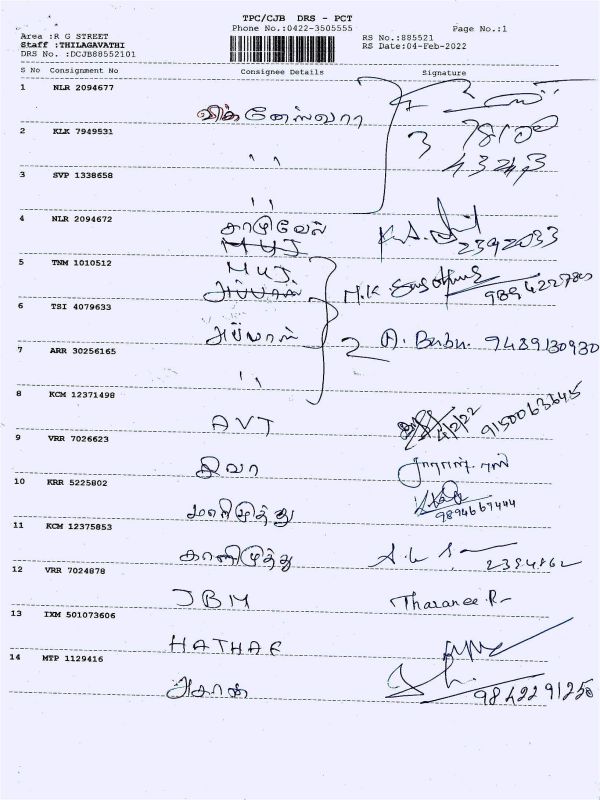 TPC/CJB DRS - PCT
Phone No.:0422-3505555 Page No.:1
Area :R G STREET
Staff :THILAGAVATHI
DRS No. :DCJB88552101
RS No.:885521
RS Date:04-Feb-2022
S No Consignment No Consignee Details Signature
1 NLR 2094677
விக்னேஸ்வரா
2 KLK 7949531
3 78100
" 43243
3 SVP 1338658
"
4 NLR 2094672
2392033
MUJ
5 TNM 1010512
MUJ
M.K. 9894222780
6 TSI 4079633
அப்பாஸ் 2 A. Babu. 9489130930
7 ARR 30256165
"
8 KCM 12371498
AVT 4/2/22 9150063645
9 VRR 7026623
சிவா
10 KRR 5225802
மாரிமுத்து 9894667444
11 KCM 12375853
காளிமுத்து 2394862
12 VRR 7024878
JBM Tharanee R
13 IXM 501073606
14 MTP 1129416
அசோக் 9842291250